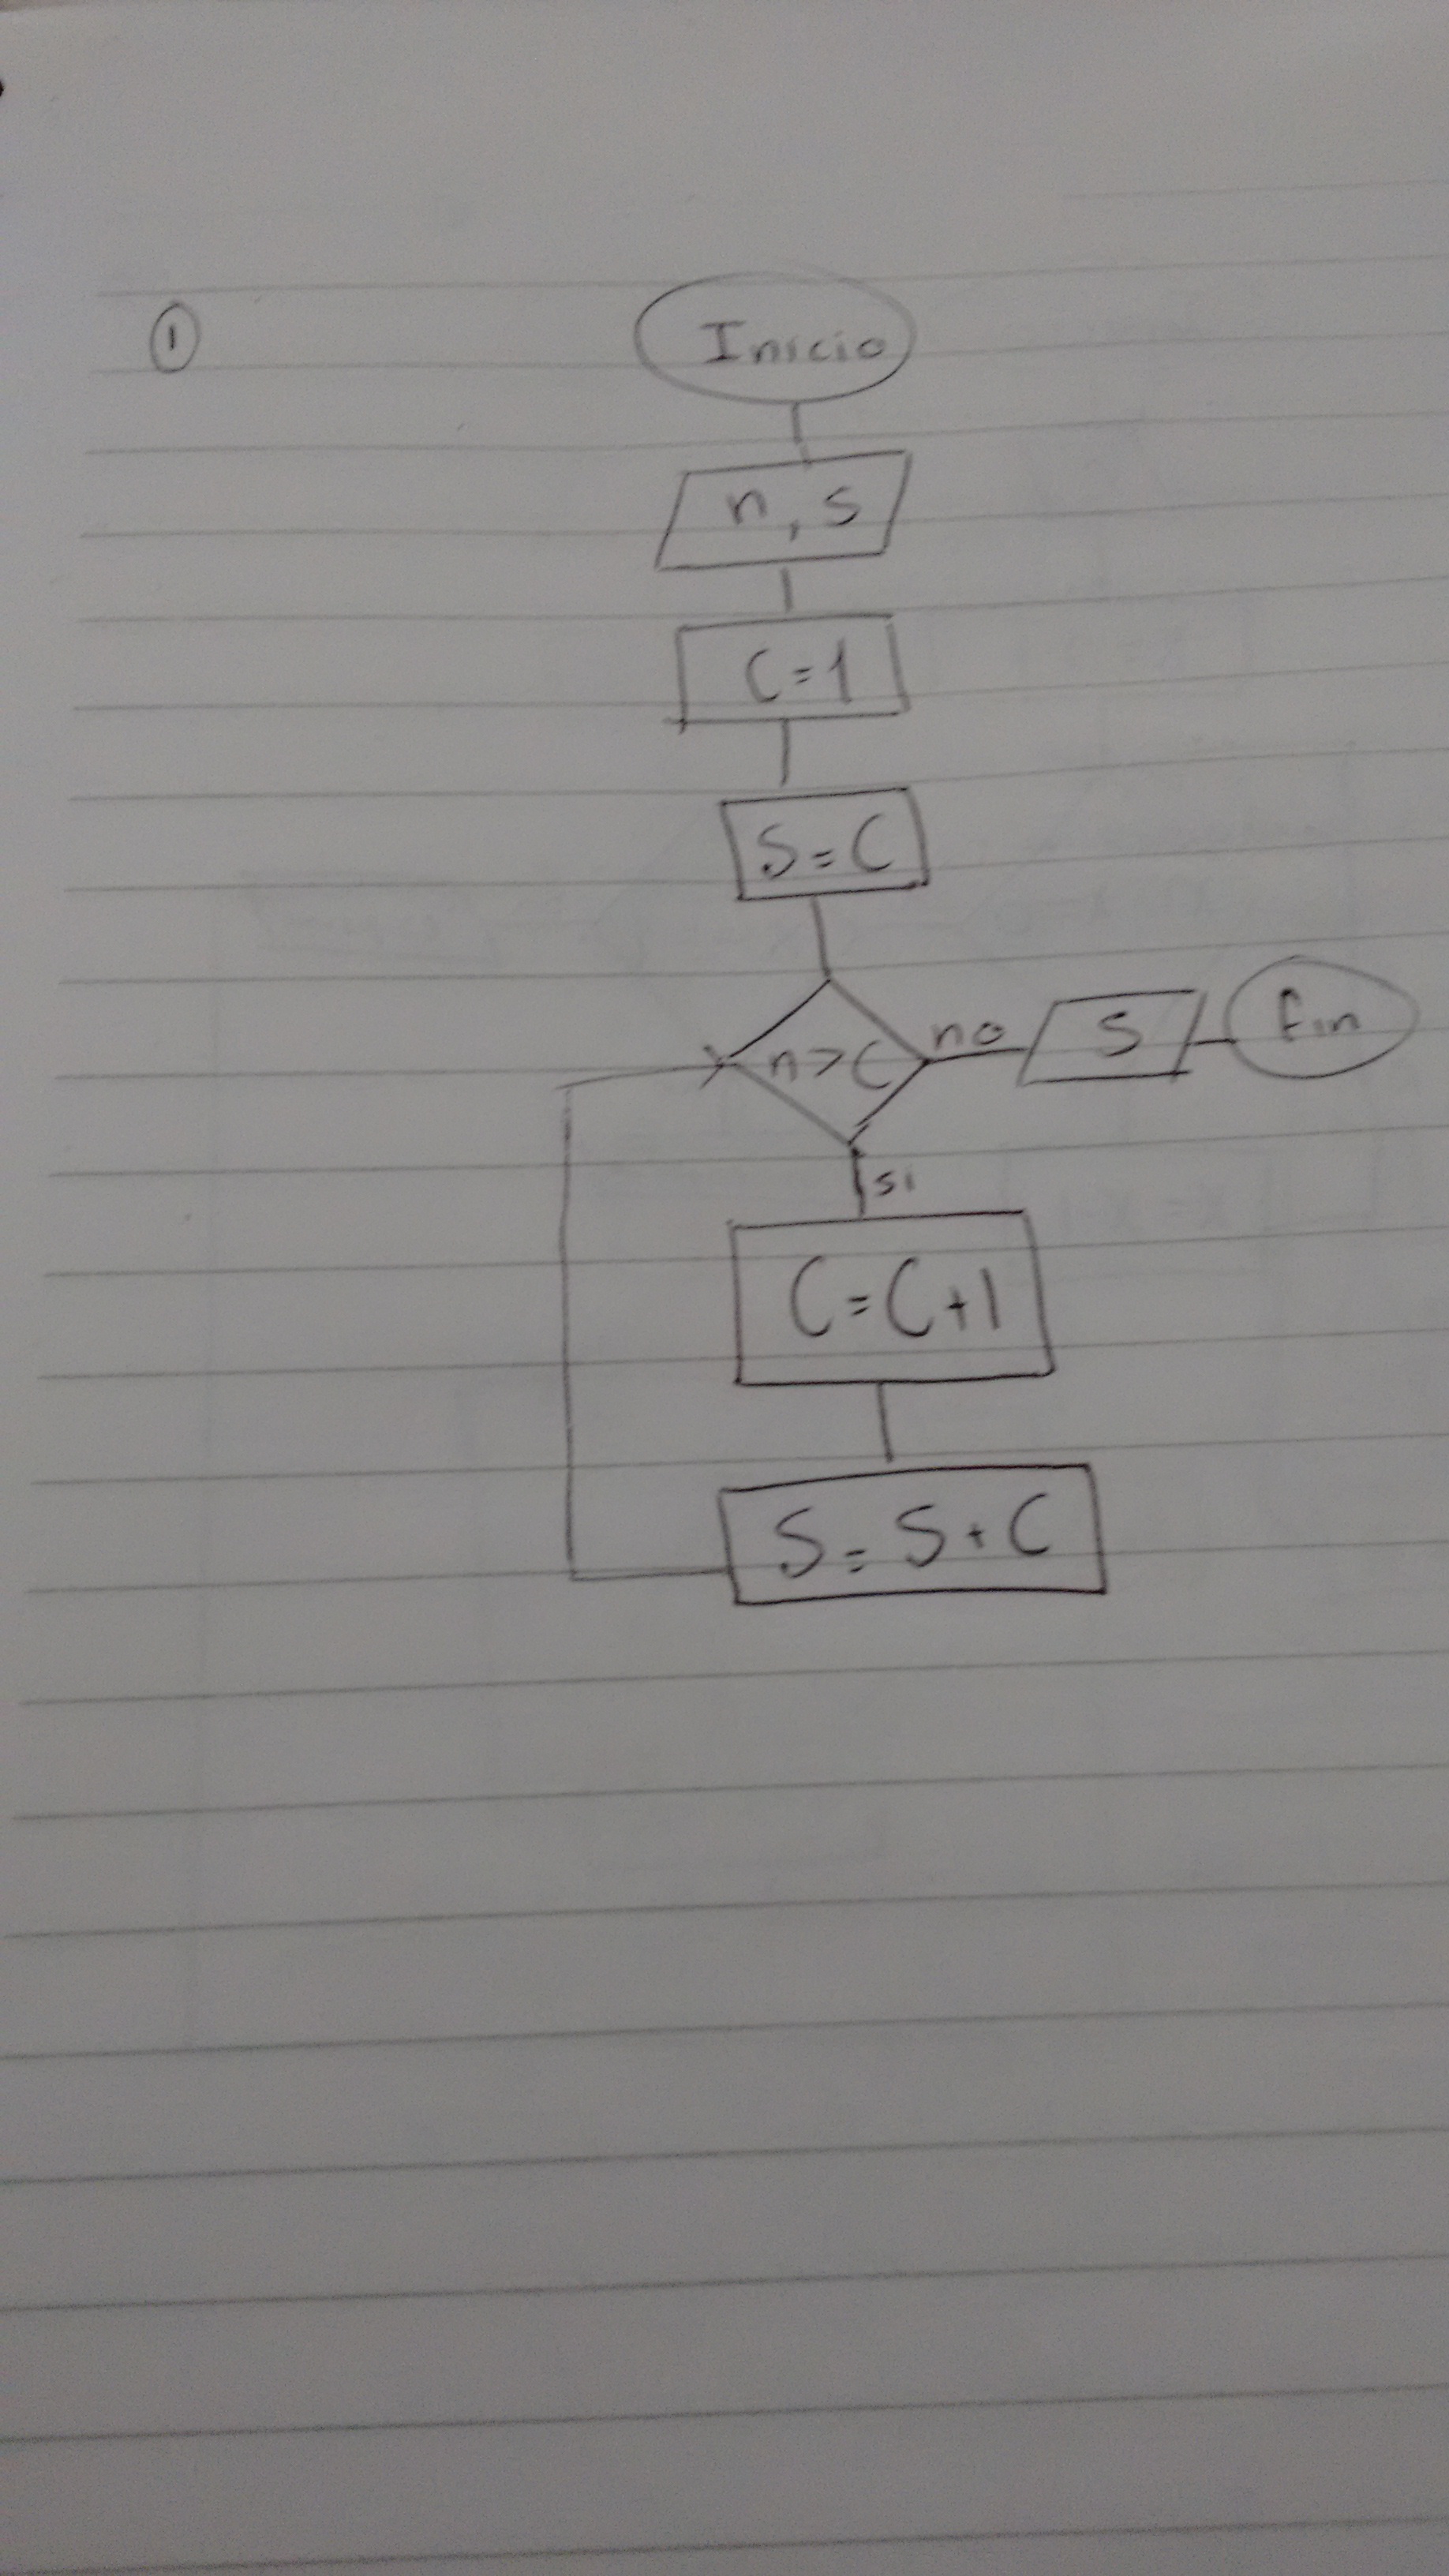 1
Inicio
n, s
C=1
S=C
n>C no S fin
si
C=C+1
S=S+C